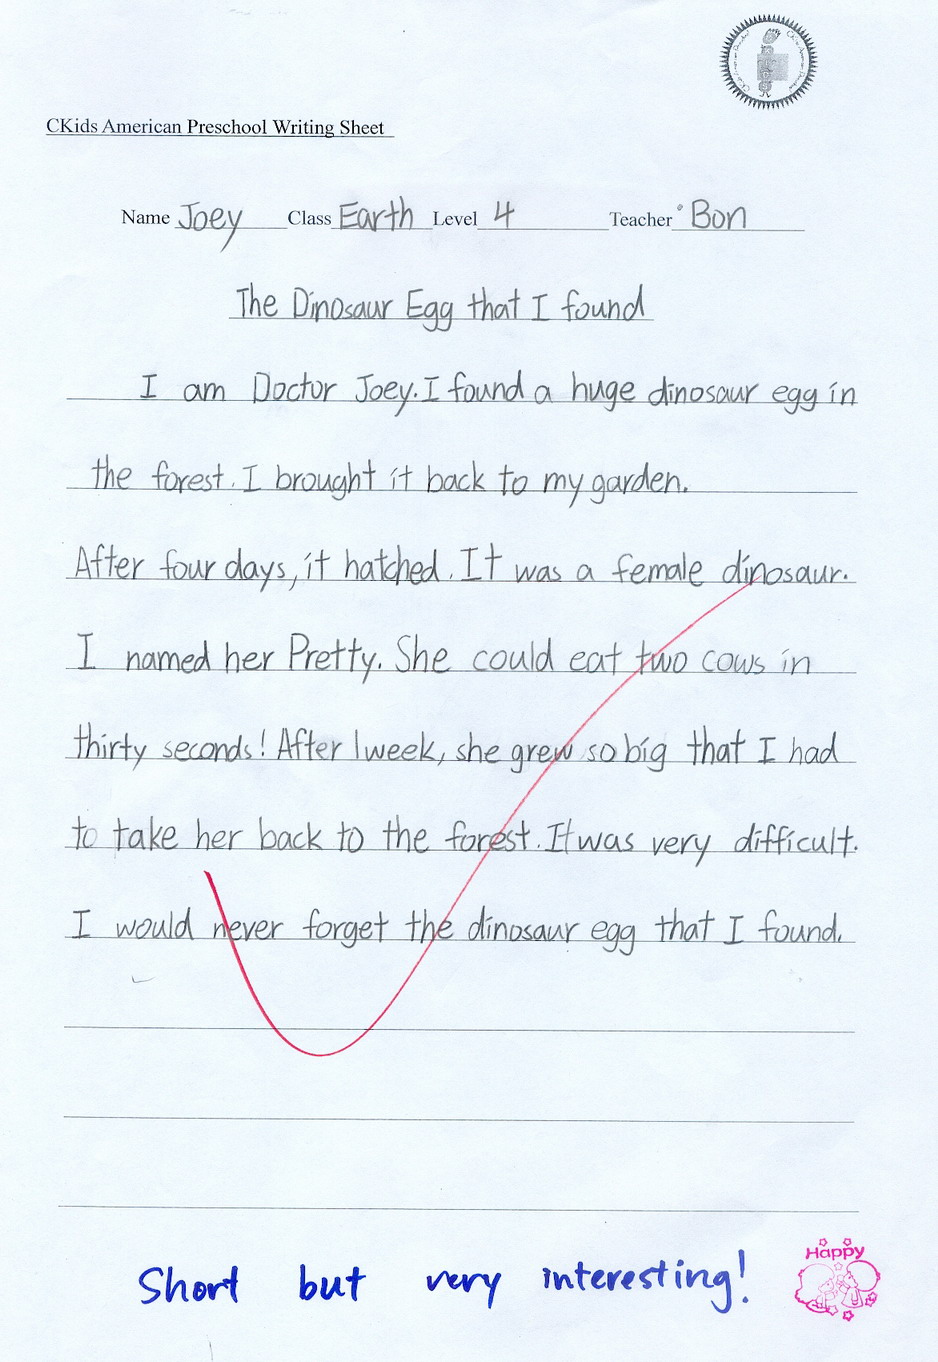 CKids American Preschool Writing Sheet
Name Joey Class Earth Level 4 Teacher Bon
The Dinosaur Egg that I found
I am Doctor Joey. I found a huge dinosaur egg in
the forest. I brought it back to my garden.
After four days, it hatched. It was a female dinosaur.
I named her Pretty. She could eat two cows in
thirty seconds! After 1 week, she grew so big that I had
to take her back to the forest. It was very difficult.
I would never forget the dinosaur egg that I found.
Short but very interesting!
Happy